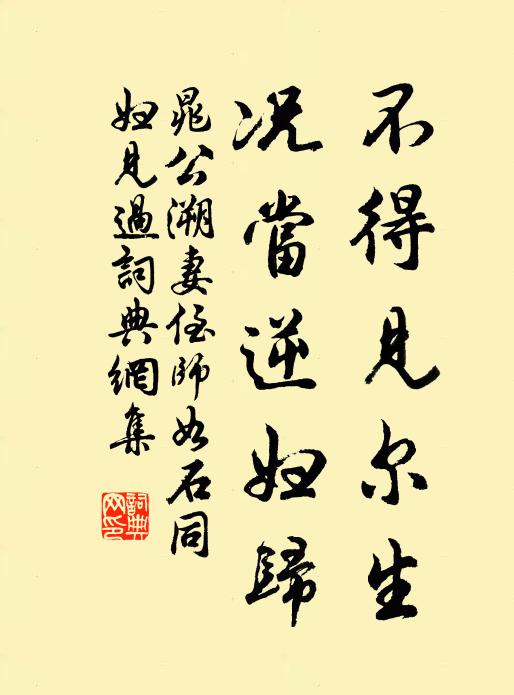 不得見尔生
况當逆妇歸
晁公溯妻侄師如石同
妇見過詞典網集
詞典網印